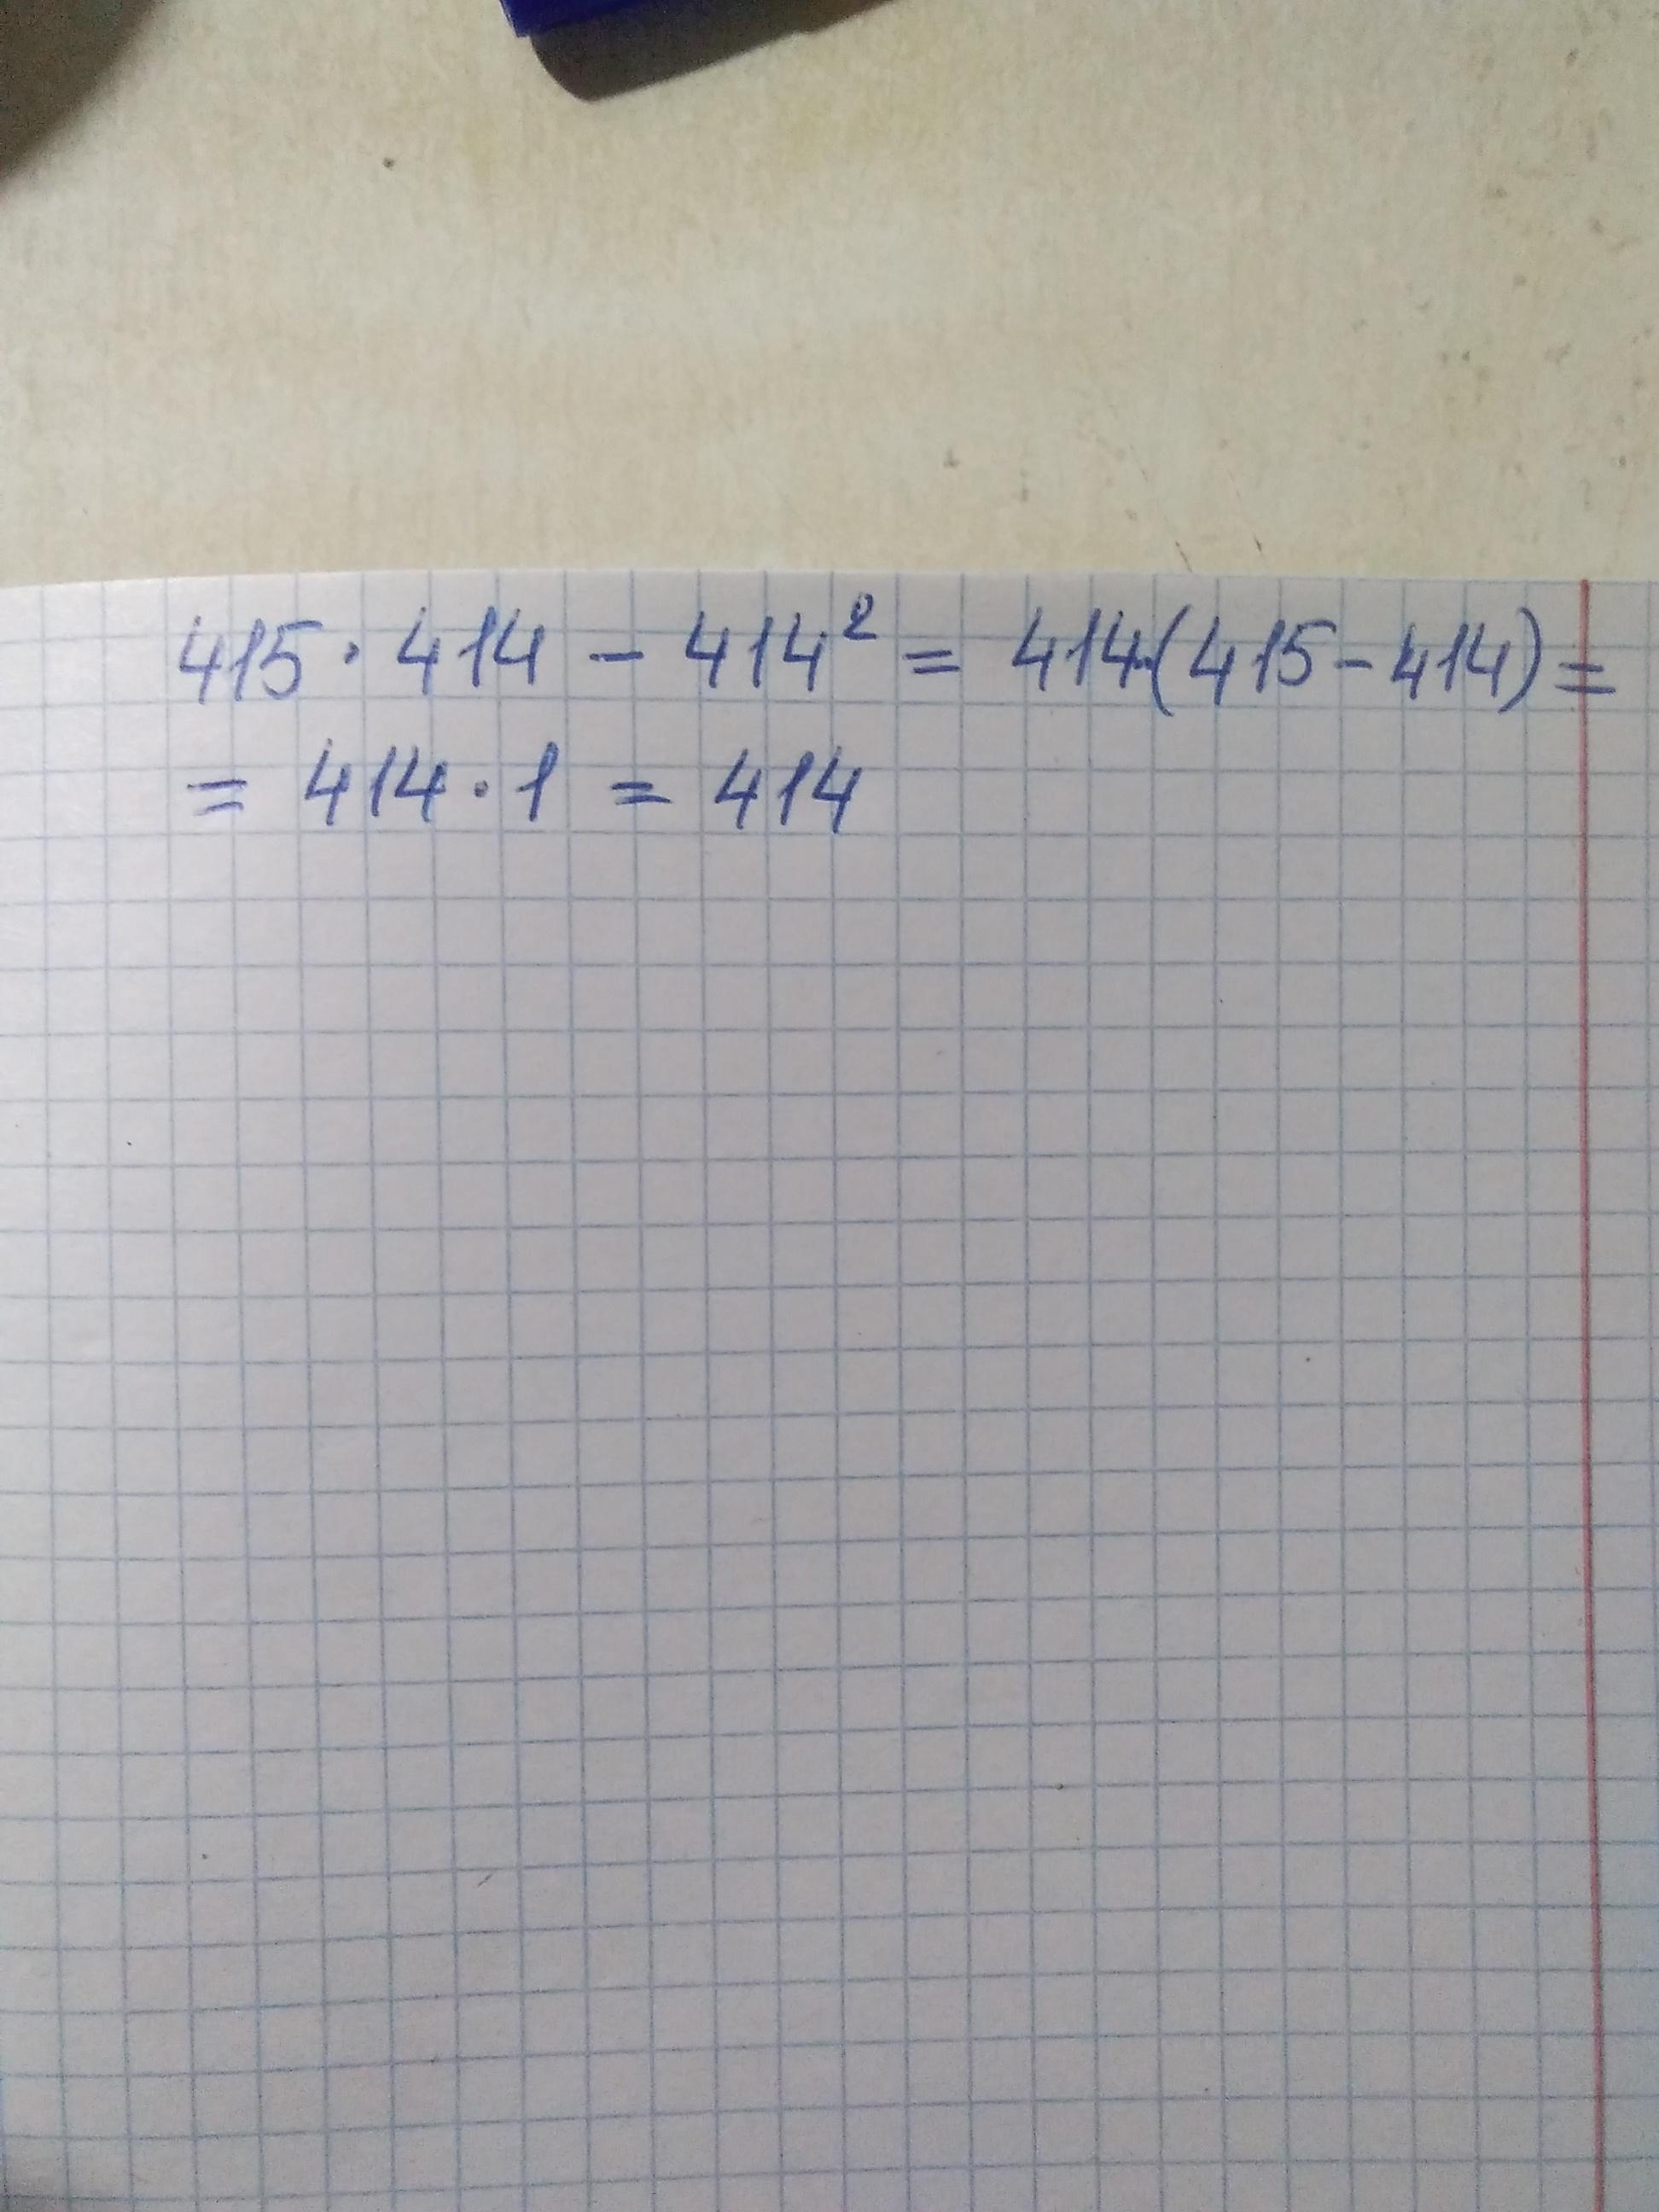 415 · 414 - 414² = 414·(415 - 414) =
= 414 · 1 = 414